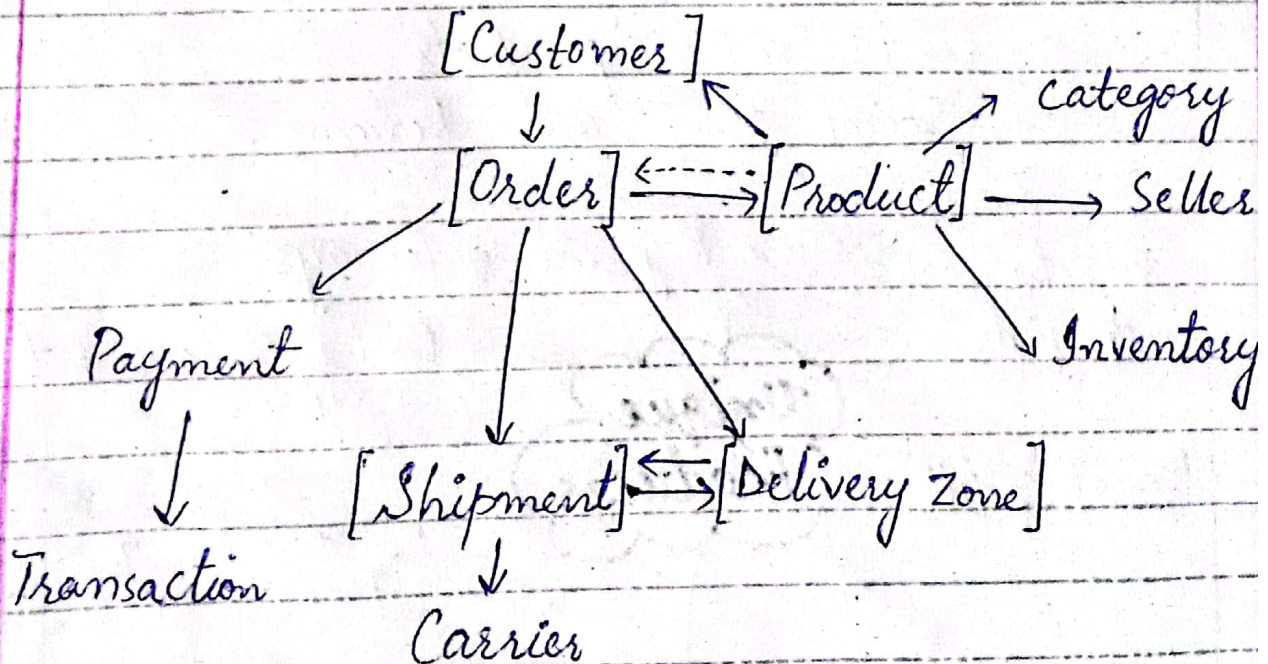 [Customer]
category
[Order] [Product] Seller
Payment Inventory
[Shipment] [Delivery Zone]
Transaction
Carrier